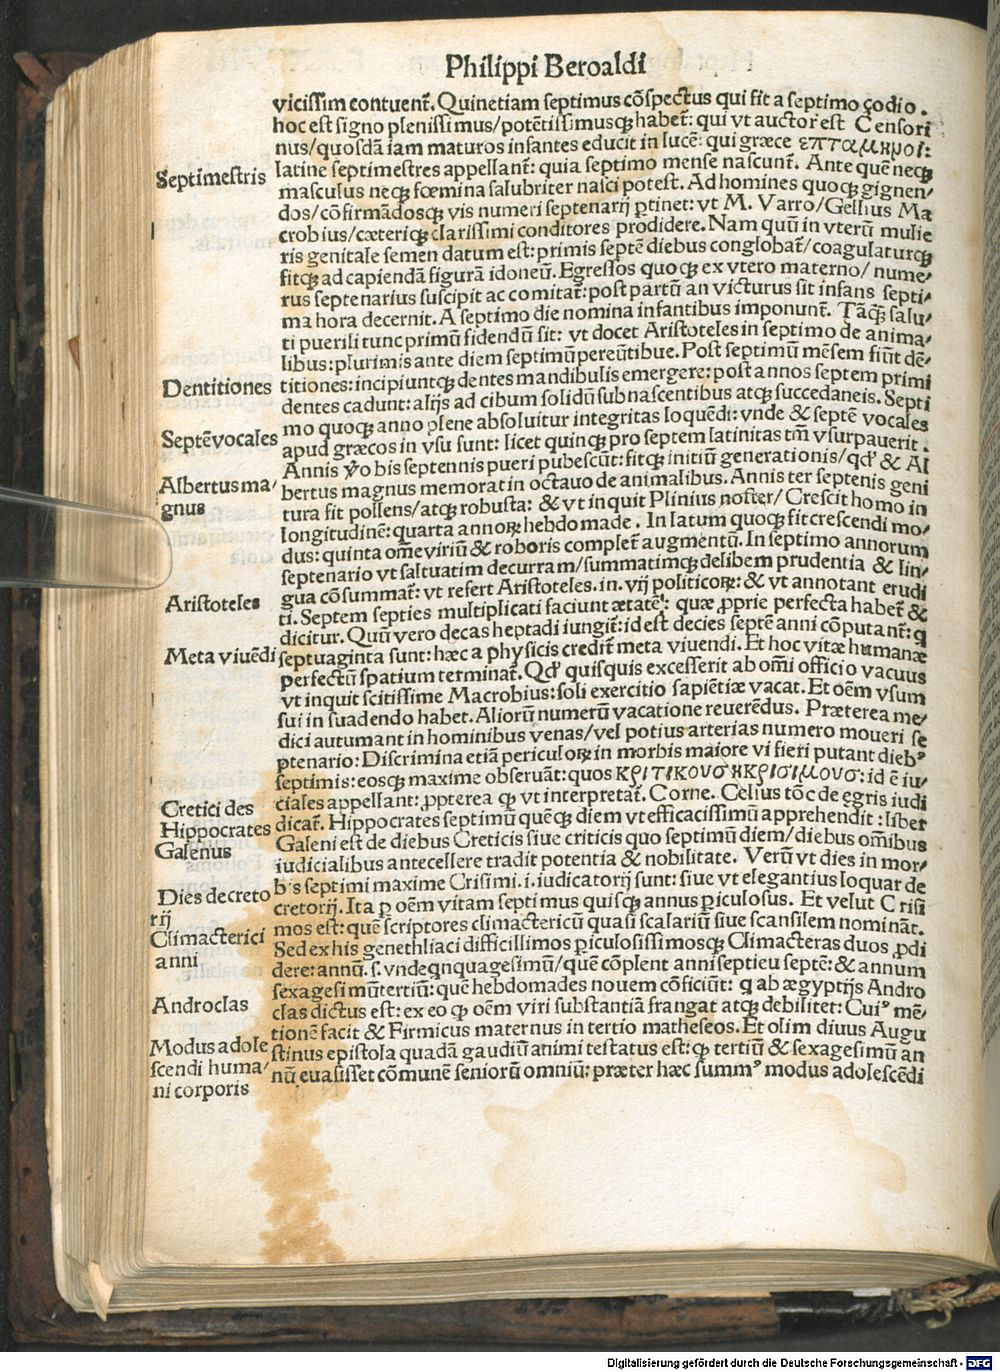 Philippi Beroaldi
vicissim contuent̃. Quinetiam septimus cõspectus qui fit a septimo çodio.
hoc est signo plenissimus/potẽtissimusqꝫ habet̃: qui vt auctor est Censori
nus/quosdã iam maturos infantes educit in lucẽ: qui græce επταμηνοι:
Septimestris
latine septimestres appellant̃: quia septimo mense nascunt̃. Ante quẽ neqꝫ
masculus neqꝫ fœmina salubriter nasci potest. Ad homines quoqꝫ gignen/
dos/cõfirmãdosqꝫ vis numeri septenarij ꝑtinet: vt M. Varro/Gellius Ma
crobius/cæteriqꝫ clarissimi conditores prodidere. Nam quũ in vterũ mulie
ris genitale semen datum est: primis septẽ diebus conglobat̃/coagulaturqꝫ
fitqꝫ ad capiendã figurã idoneũ. Egressos quoqꝫ ex vtero materno/nume/
rus septenarius suscipit ac comitat̃: post partũ an victurus sit infans septi/
ma hora decernit. A septimo die nomina infantibus imponunt̃. Tãqꝫ salu/
ti puerili tunc primũ fidendũ sit: vt docet Aristoteles in septimo de anima/
libus: plurimis ante diem septimũ pereũtibue. Post septimũ mẽsem fiũt dẽ/
Dentitiones
titiones: incipiuntqꝫ dentes mandibulis emergere: post annos septem primi
dentes cadunt: alijs ad cibum solidũ subnascentibus atqꝫ succedaneis. Septi
mo quoqꝫ anno plene absoluitur integritas loquẽdi: vnde & septẽ vocales
Septẽ vocales
apud græcos in vsu sunt: licet quinqꝫ pro septem latinitas tm̃ vsurpauerit.
Annis ṽo bis septennis pueri pubescũt: fitqꝫ initiũ generationis/qđ & Al
Albertus ma/
gnus
bertus magnus memorat in octauo de animalibus. Annis ter septenis geni
tura fit pollens/atqꝫ robusta: & vt inquit Plinius noster/Crescit homo in
longitudinẽ: quarta annoꝝ hebdomade. In latum quoqꝫ fit crescendi mo/
dus: quinta om̃e viriũ & roboris complet̃ augmentũ. In septimo annorum
septenario vt saltuatim decurram/summatimqꝫ delibem prudentia & lin/
Aristoteles
gua cõsummat̃: vt refert Aristoteles. in. vij politicoꝝ: & vt annotant erudi
ti. Septem septies multiplicati faciunt ætatẽ: quæ ꝓprie perfecta habet̃ &
dicitur. Quũ vero decas heptadi iungit̃: id est decies septẽ anni cõputant̃: q
Meta viuẽdi
septuaginta sunt: hæc a physicis credit̃ meta viuendi. Et hoc vitæ humanæ
perfectũ spatium terminat̃. Qđ quisquis excesserit ab om̃i officio vacuus
vt inquit scitissime Macrobius: soli exercitio sapiẽtiæ vacat. Et oẽm vsum
sui in suadendo habet. Aliorũ numerũ vacatione reuerẽdus. Præterea me/
dici autumant in hominibus venas/vel potius arterias numero moueri se
ptenario: Discrimina etiã periculoꝝ in morbis maiore vi fieri putant diebꝰ
septimis: eosqꝫ maxime obseruãt: quos κριτικουσ ηκρισιμουσ: id ẽ iu/
Cretici des
Hippocrates
Galenus
ciales appellant: ꝓpterea ꝙ vt interpretat̃. Corne. Celius tõc de egris iudi
dicat̃. Hippocrates septimũ quẽqꝫ diem vt efficacissimũ apprehendit: liber
Galeni est de diebus Creticis siue criticis quo septimũ diem/diebus om̃ibus
iudicialibus antecellere tradit potentia & nobilitate. Verũ vt dies in mor/
Dies decreto
rij
bis septimi maxime Crisimi. i. iudicatorij sunt: siue vt elegantius loquar de
cretorij. Ita ꝑ oẽm vitam septimus quisqꝫ annus ꝑiculosus. Et velut Crisi
Climacterici
anni
mos est: quẽ scriptores climactericũ quasi scalariũ siue scansilem nominãt.
Sed ex his genethliaci difficillimos ꝑiculosissimosqꝫ Climacteras duos ꝓdi
dere: annũ. s. vndeqnquagesimũ/quẽ cõplent anni septieu septẽ: & annum
sexagesimũ tertium: quẽ hebdomades nouem cõficiũt: q ab ægyptijs Andro
Androclas
clas dictus est: ex eo ꝙ oẽm viri substantiã frangat atqꝫ debilitet: Cuiꝰ mẽ/
tionẽ facit & Firmicus maternus in tertio matheseos. Et olim diuus Augu
Modus adole
scendi huma/
ni corporis
stinus epistola quadã gaudiũ animi testatus est: ꝙ tertiũ & sexagesimũ an
nũ euasisset cõmunẽ seniorũ omniũ: præter hæc summꝰ modus adolescẽdi
Digitalisierung gefördert durch die Deutsche Forschungsgemeinschaft - DFG